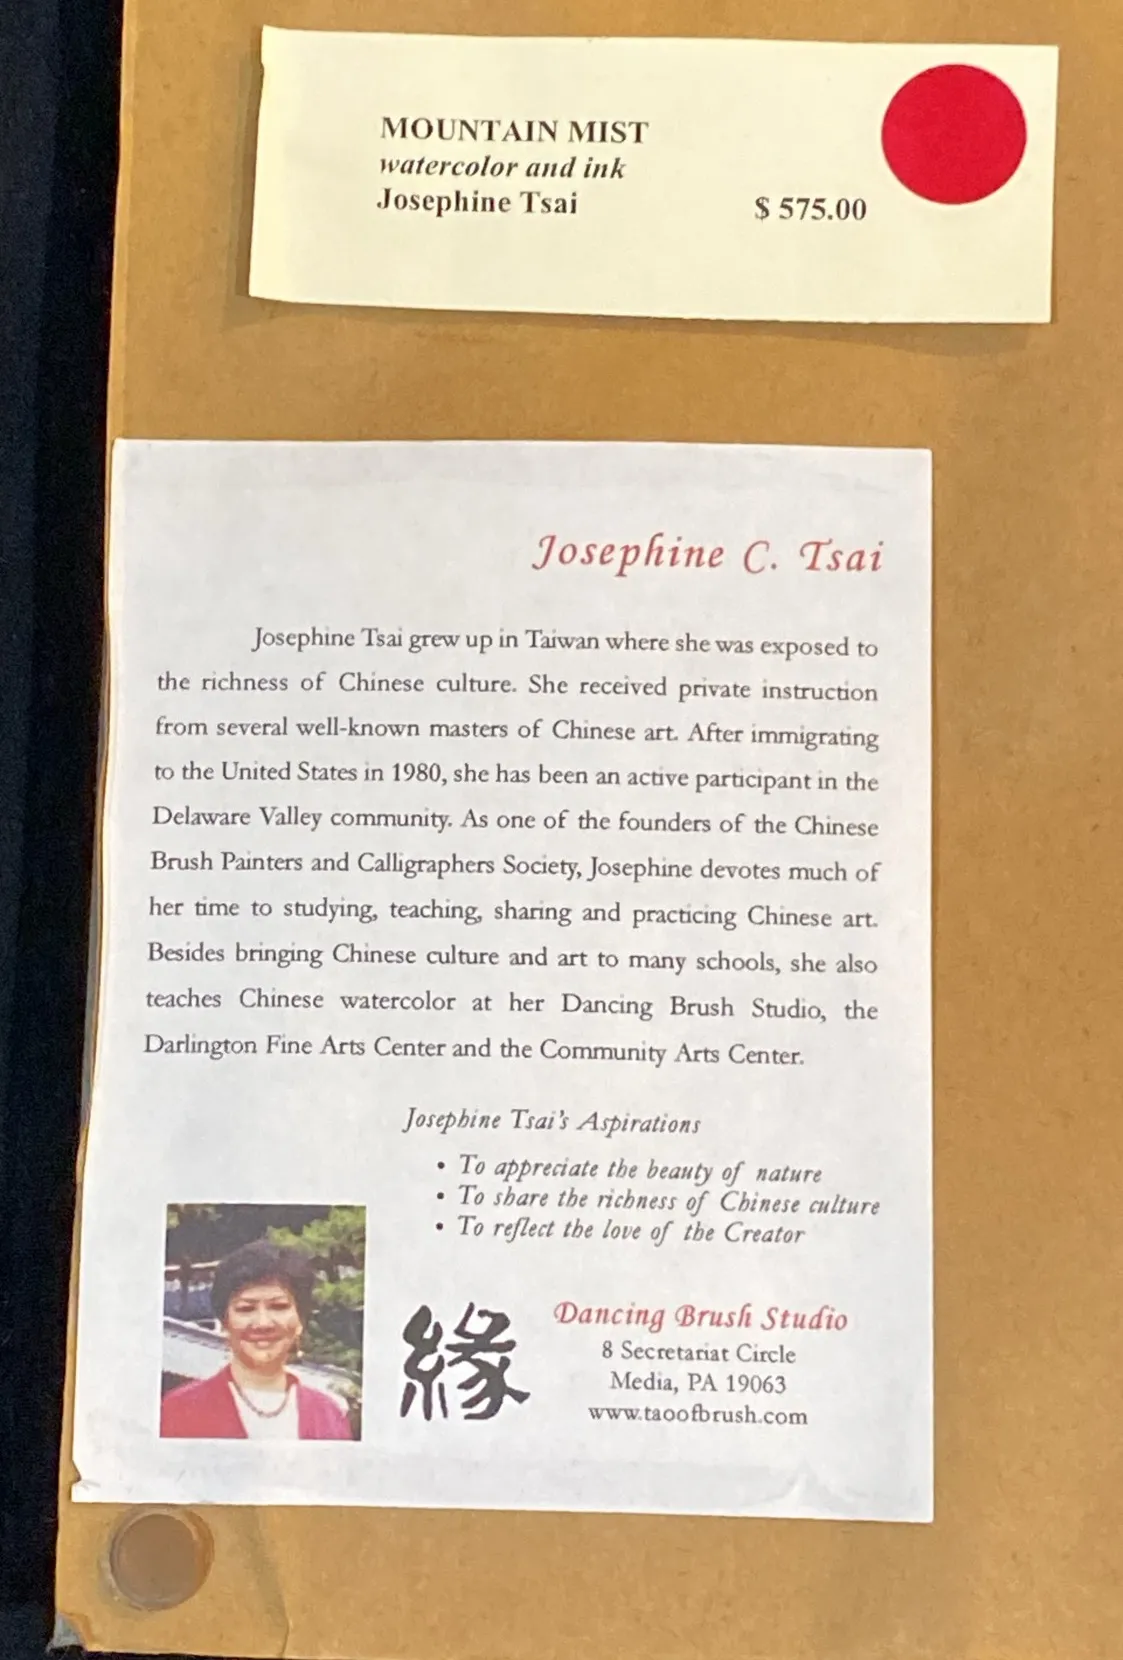 MOUNTAIN MIST
watercolor and ink
Josephine Tsai
$ 575.00
Josephine C. Tsai
Josephine Tsai grew up in Taiwan where she was exposed to
the richness of Chinese culture. She received private instruction
from several well-known masters of Chinese art. After immigrating
to the United States in 1980, she has been an active participant in the
Delaware Valley community. As one of the founders of the Chinese
Brush Painters and Calligraphers Society, Josephine devotes much of
her time to studying, teaching, sharing and practicing Chinese art.
Besides bringing Chinese culture and art to many schools, she also
teaches Chinese watercolor at her Dancing Brush Studio, the
Darlington Fine Arts Center and the Community Arts Center.
Josephine Tsai's Aspirations
• To appreciate the beauty of nature
• To share the richness of Chinese culture
• To reflect the love of the Creator
緣
Dancing Brush Studio
8 Secretariat Circle
Media, PA 19063
www.taoofbrush.com